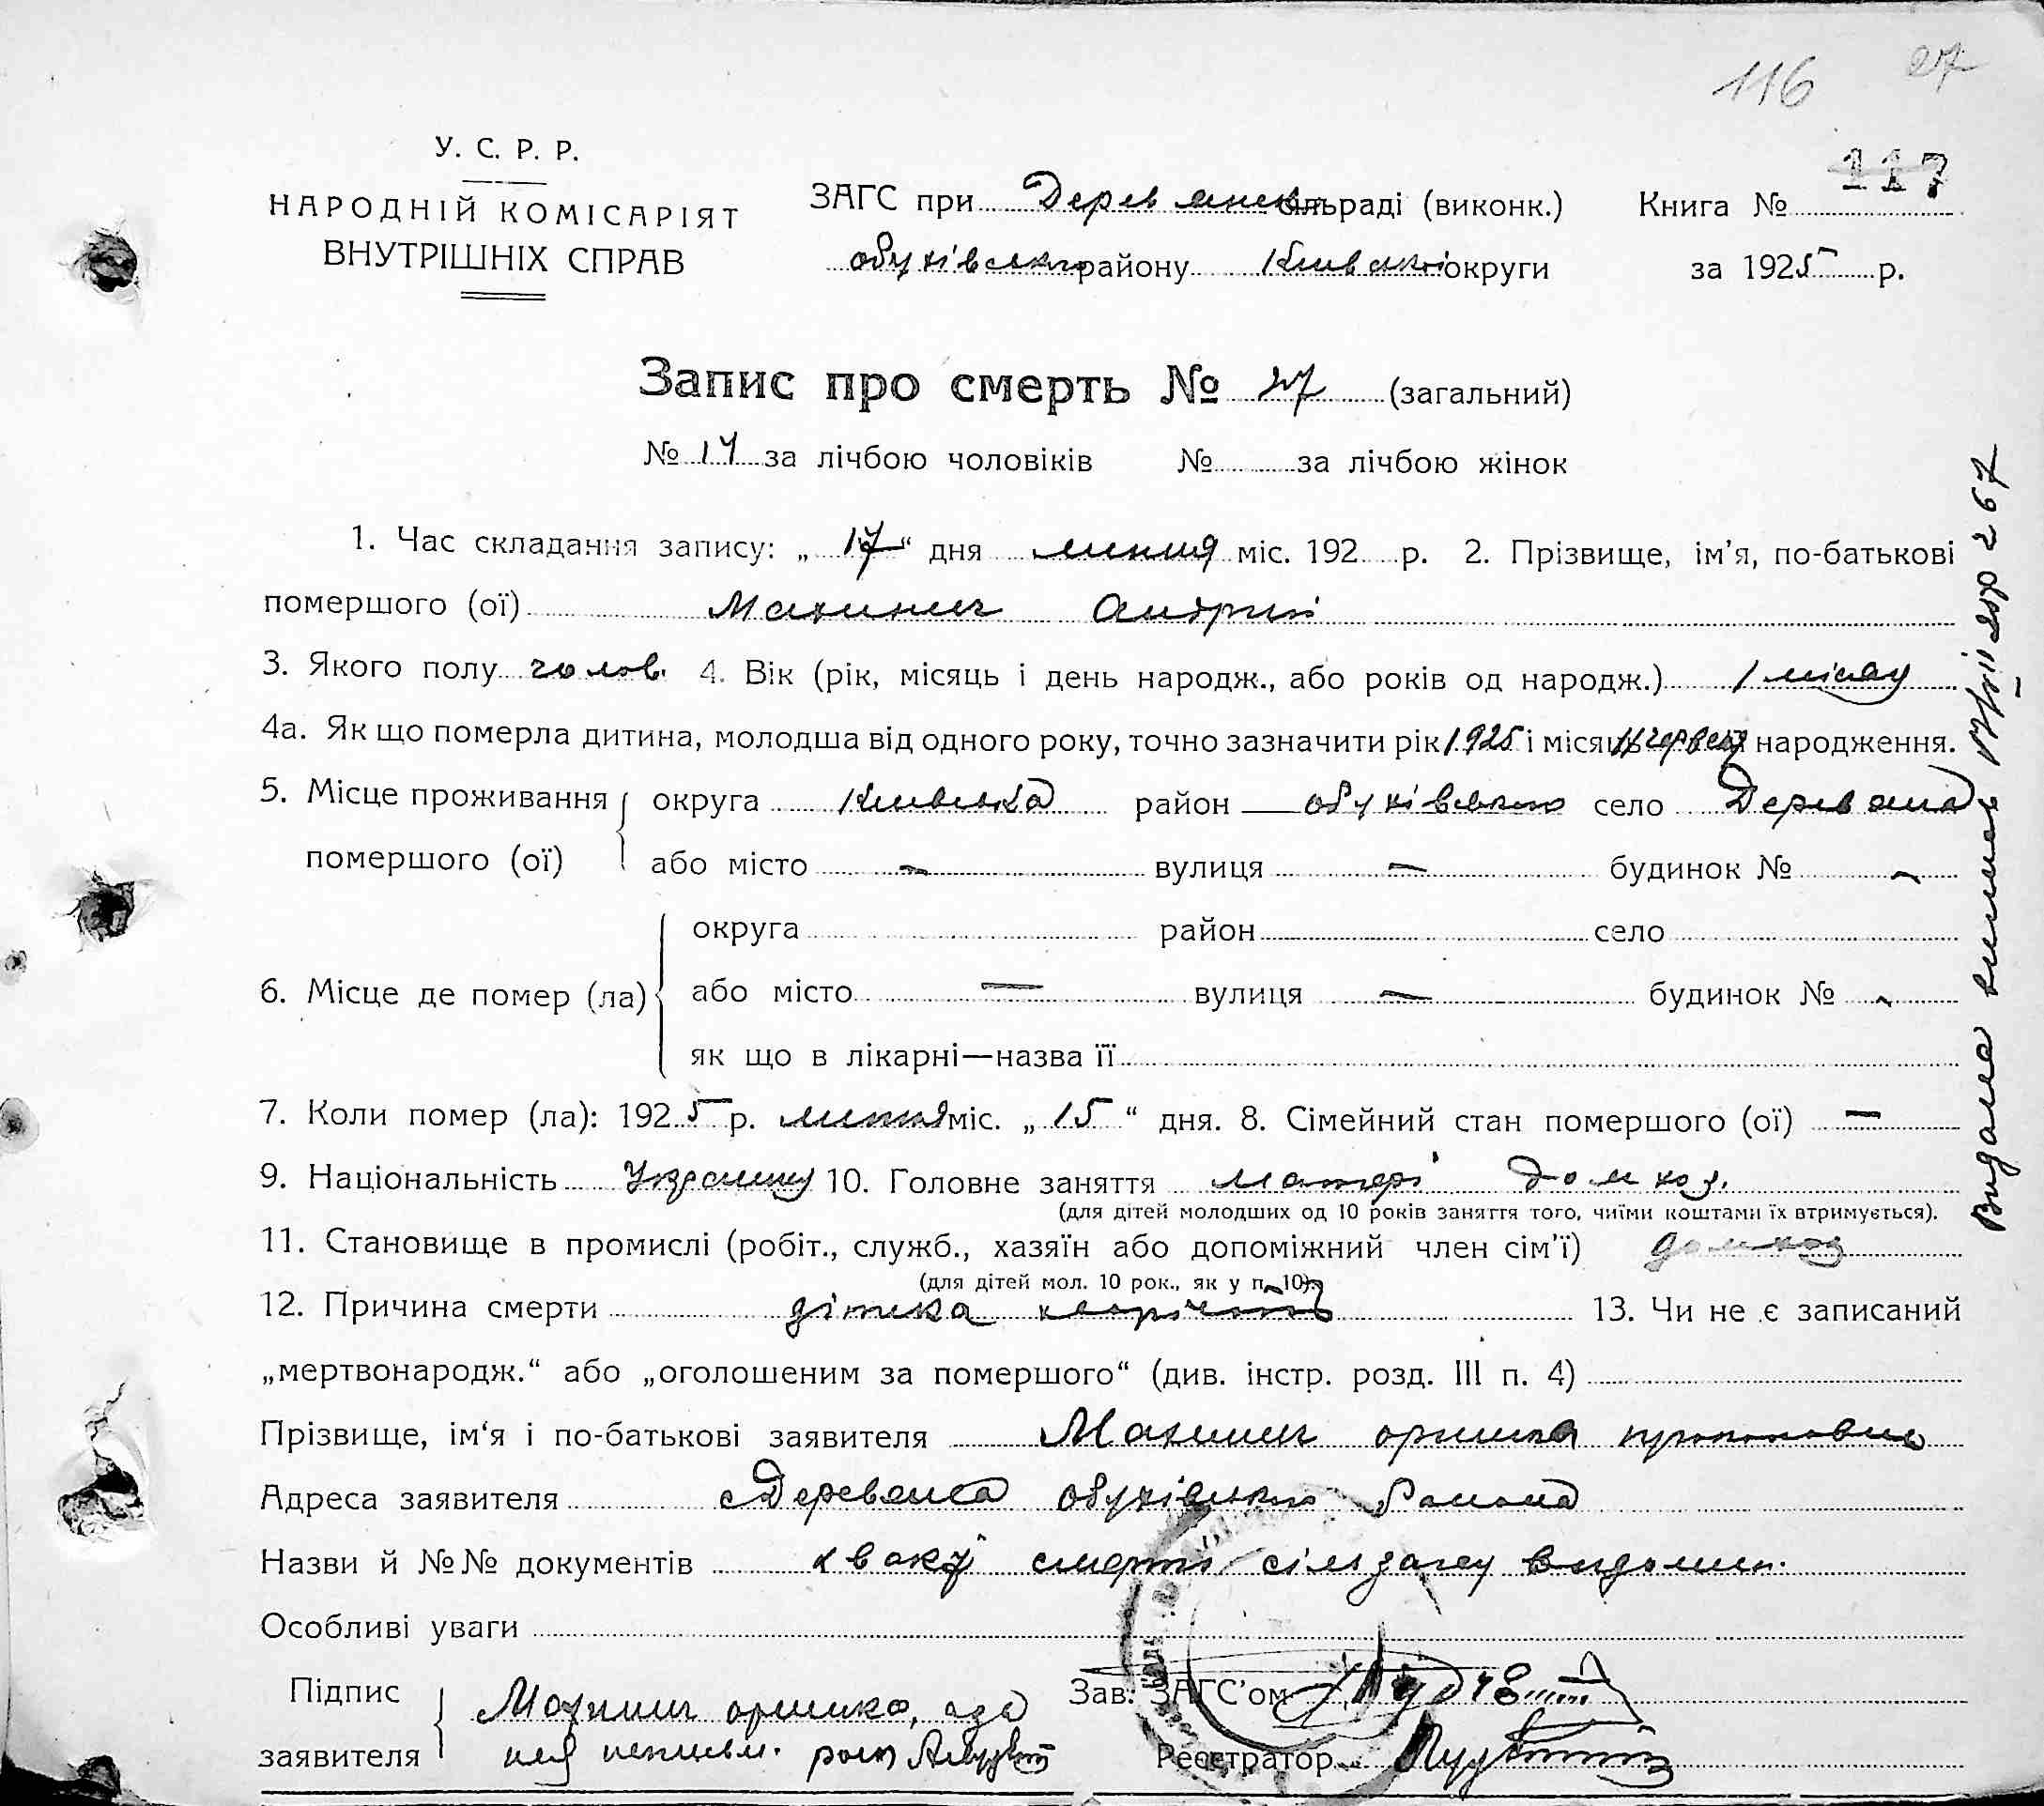 116 27
У. С. Р. Р.
НАРОДНІЙ КОМІСАРІЯТ
ВНУТРІШНІХ СПРАВ
ЗАГС при Деревянск. сільраді (виконк.) Книга № 117
обухівського району Київської округи за 1925 р.
Запис про смерть № 27 (загальний)
№ 14 за лічбою чоловіків № за лічбою жінок
1. Час складання запису: „ 17 “ дня липня міс. 192 р. 2. Прізвище, ім’я, по-батькові
помершого (ої) Махинич Андрій
3. Якого полу чолов. 4. Вік (рік, місяць і день народж., або років од народж.) 1 місяц
4а. Як що померла дитина, молодша від одного року, точно зазначити рік 1925 і місяць червня народження.
5. Місце проживання округа Київська район обухівського село Деревяна
помершого (ої) або місто — вулиця — будинок № —
6. Місце де помер (ла) округа район село
або місто — вулиця — будинок № —
як що в лікарні—назва її
7. Коли помер (ла): 1925 р. липня міс. „ 15 “ дня. 8. Сімейний стан помершого (ої) —
9. Національність Українц 10. Головне заняття матері домхоз.
(для дітей молодших од 10 років заняття того, чиїми коштами їх втримується).
11. Становище в промислі (робіт., служб., хазяїн або допоміжний член сім’ї) домхоз
(для дітей мол. 10 рок., як у п. 10).
12. Причина смерти дітска 13. Чи не є записаний
„мертвонародж.“ або „оголошеним за помершого“ (див. інстр. розд. III п. 4)
Прізвище, ім‘я і по-батькові заявителя Махинич оришка
Адреса заявителя Деревянка обухівського Района
Назви й №№ документів смерти сільзагсу
Особливі уваги
Підпис
заявителя
Махинич оришка, а за
нея неписьм. росп
Зав. ЗАГС’ом
Реєстратор
Видана виписка 267